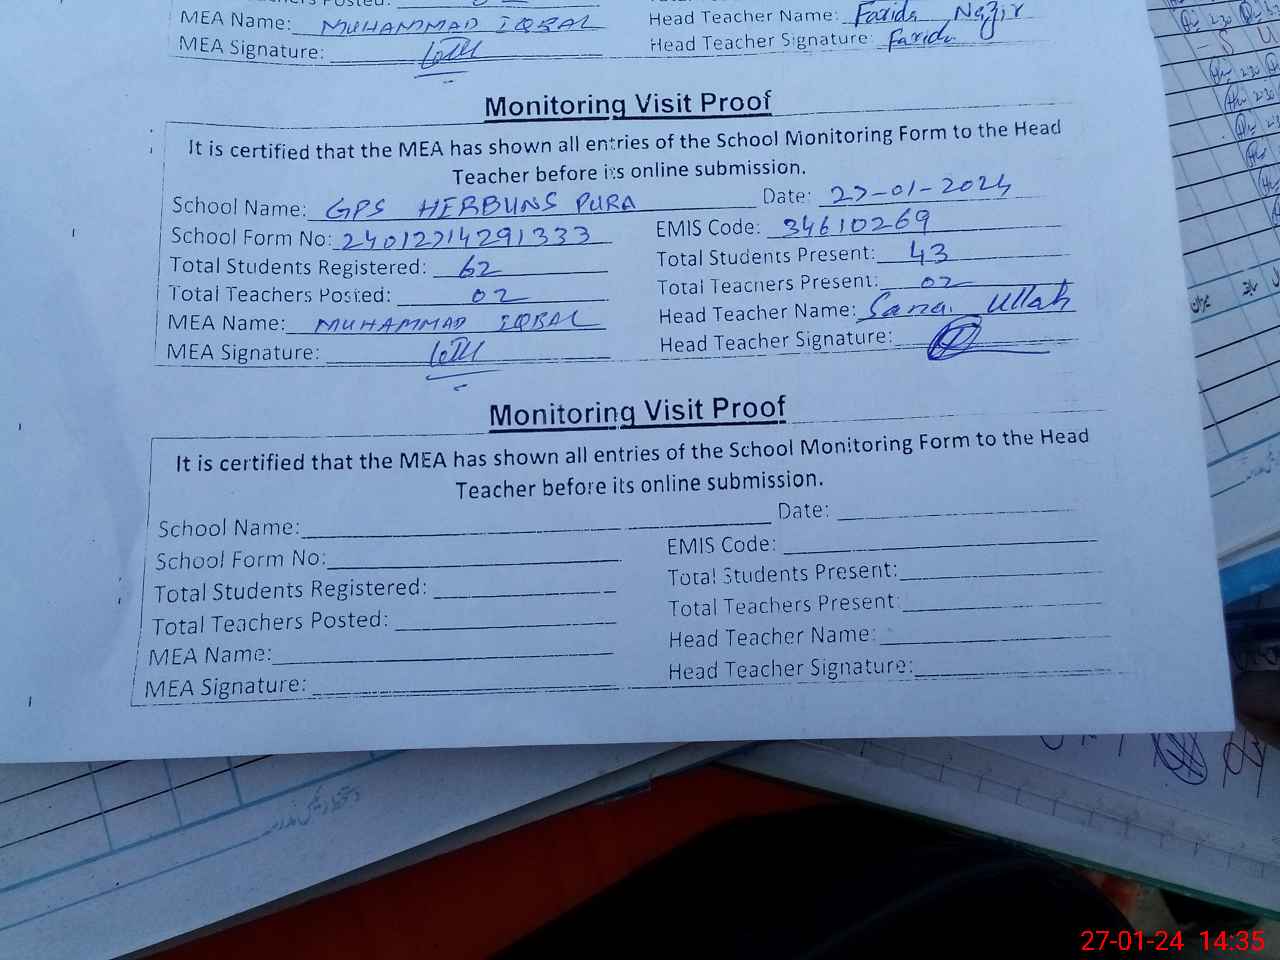 MEA Name: MUHAMMAD IQBAL Head Teacher Name: Farida Nazir
MEA Signature: Head Teacher Signature: Farida
Monitoring Visit Proof
It is certified that the MEA has shown all entries of the School Monitoring Form to the Head
Teacher before its online submission.
School Name: GPS HERBUNS PURA Date: 27-01-2024
School Form No: 24012714291333 EMIS Code: 34610269
Total Students Registered: 62 Total Students Present: 43
Total Teachers Posted: 02 Total Teachers Present: 02
MEA Name: MUHAMMAD IQBAL Head Teacher Name: Sana Ullah
MEA Signature: Head Teacher Signature:
Monitoring Visit Proof
It is certified that the MEA has shown all entries of the School Monitoring Form to the Head
Teacher before its online submission.
School Name: Date:
School Form No: EMIS Code:
Total Students Registered: Total Students Present:
Total Teachers Posted: Total Teachers Present:
MEA Name: Head Teacher Name:
MEA Signature: Head Teacher Signature:
27-01-24 14:35